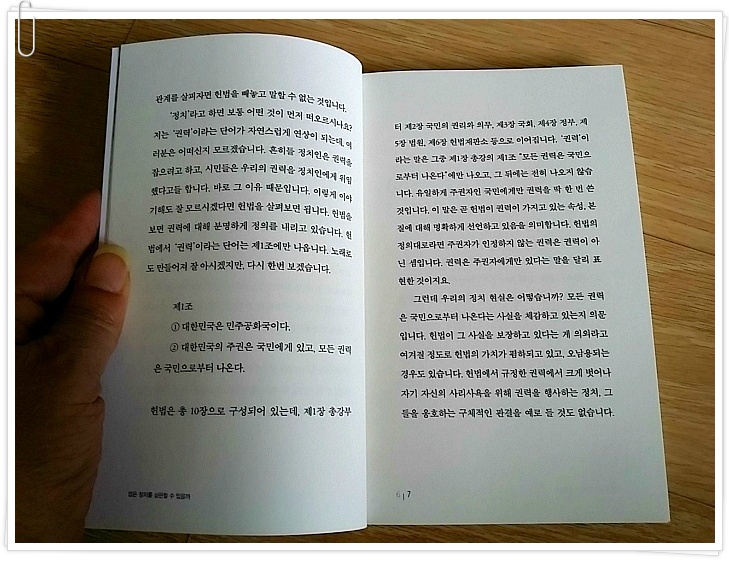 관계를 살피자면 헌법을 빼놓고 말할 수 없는 것입니다.
'정치'라고 하면 보통 어떤 것이 먼저 떠오르시나요?
저는 '권력'이라는 단어가 자연스럽게 연상이 되는데, 여
러분은 어떠신지 모르겠습니다. 흔히들 정치인은 권력을
잡으려고 하고, 시민들은 우리의 권력을 정치인에게 위임
했다고들 합니다. 바로 그 이유 때문입니다. 이렇게 이야
기해도 잘 모르시겠다면 헌법을 살펴보면 됩니다. 헌법을
보면 권력에 대해 분명하게 정의를 내리고 있습니다. 헌
법에서 '권력'이라는 단어는 제1조에만 나옵니다. 노래로
도 만들어져 잘 아시겠지만, 다시 한번 보겠습니다.
제1조
① 대한민국은 민주공화국이다.
② 대한민국의 주권은 국민에게 있고, 모든 권력
은 국민으로부터 나온다.
헌법은 총 10장으로 구성되어 있는데, 제1장 총강부
법은 정치를 심판할 수 있을까
터 제2장 국민의 권리와 의무, 제3장 국회, 제4장 정부, 제
5장 법원, 제6장 헌법재판소 등으로 이어집니다. '권력'이
라는 말은 그중 제1장 총강의 제1조 "모든 권력은 국민으
로부터 나온다"에만 나오고, 그 뒤에는 전혀 나오지 않습
니다. 유일하게 주권자인 국민에게만 권력을 딱 한 번 쓴
것입니다. 이 말은 곧 헌법이 권력이 가지고 있는 속성, 본
질에 대해 명확하게 선언하고 있음을 의미합니다. 헌법의
정의대로라면 주권자가 인정하지 않는 권력은 권력이 아
닌 셈입니다. 권력은 주권자에게만 있다는 말을 달리 표
현한 것이지요.
그런데 우리의 정치 현실은 어떻습니까? 모든 권력
은 국민으로부터 나온다는 사실을 체감하고 있는지 의문
입니다. 헌법이 그 사실을 보장하고 있다는 게 의외라고
여겨질 정도로 헌법의 가치가 폄하되고 있고, 오남용되는
경우도 있습니다. 헌법에서 규정한 권력에서 크게 벗어나
자기 자신의 사리사욕을 위해 권력을 행사하는 정치, 그
들을 옹호하는 구체적인 판결을 예로 들 것도 없습니다.
6 | 7